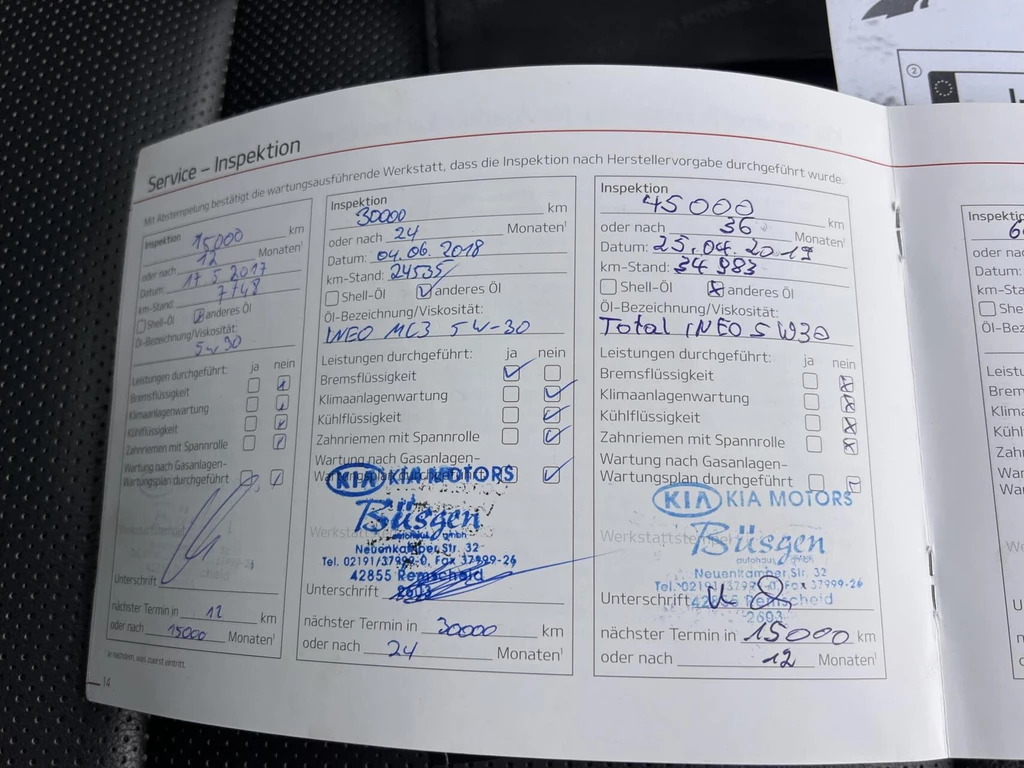 Service – Inspektion
Mit Abstempelung bestätigt die wartungsausführende Werkstatt, dass die Inspektion nach Herstellervorgabe durchgeführt wurde.
Inspektion 15000 km
oder nach 12 Monaten¹
Datum: 17.5.2017
km-Stand: 7748
Shell-Öl anderes Öl
Öl-Bezeichnung/Viskosität:
5w30
Leistungen durchgeführt: ja nein
Bremsflüssigkeit
Klimaanlagenwartung
Kühlflüssigkeit
Zahnriemen mit Spannrolle
Wartung nach Gasanlagen-
Wartungsplan durchgeführt
Unterschrift
nächster Termin in 12 km
oder nach 15000 Monaten¹
¹ je nachdem, was zuerst eintritt.
14
Inspektion
30000 km
oder nach 24 Monaten¹
Datum: 04.06.2018
km-Stand: 24535
Shell-Öl anderes Öl
Öl-Bezeichnung/Viskosität:
INEO MC3 5W-30
Leistungen durchgeführt: ja nein
Bremsflüssigkeit
Klimaanlagenwartung
Kühlflüssigkeit
Zahnriemen mit Spannrolle
Wartung nach Gasanlagen-
Wartungsplan durchgeführt
KIA KIA MOTORS
Büsgen
autohaus gmbh
Neuenkamper Str. 32
Tel. 02191/37999-0, Fax 37999-26
42855 Remscheid
2603
Unterschrift
nächster Termin in 30000 km
oder nach 24 Monaten¹
Inspektion
45000 km
oder nach 36 Monaten¹
Datum: 25.04.2019
km-Stand: 34983
Shell-Öl anderes Öl
Öl-Bezeichnung/Viskosität:
Total INEO 5W30
Leistungen durchgeführt: ja nein
Bremsflüssigkeit
Klimaanlagenwartung
Kühlflüssigkeit
Zahnriemen mit Spannrolle
Wartung nach Gasanlagen-
Wartungsplan durchgeführt
KIA KIA MOTORS
Werkstattstempel
Büsgen
autohaus gmbh
Neuenkamper Str. 32
Tel. 02191/37999-0, Fax 37999-26
42855 Remscheid
2603
Unterschrift
nächster Termin in 15000 km
oder nach 12 Monaten¹
2